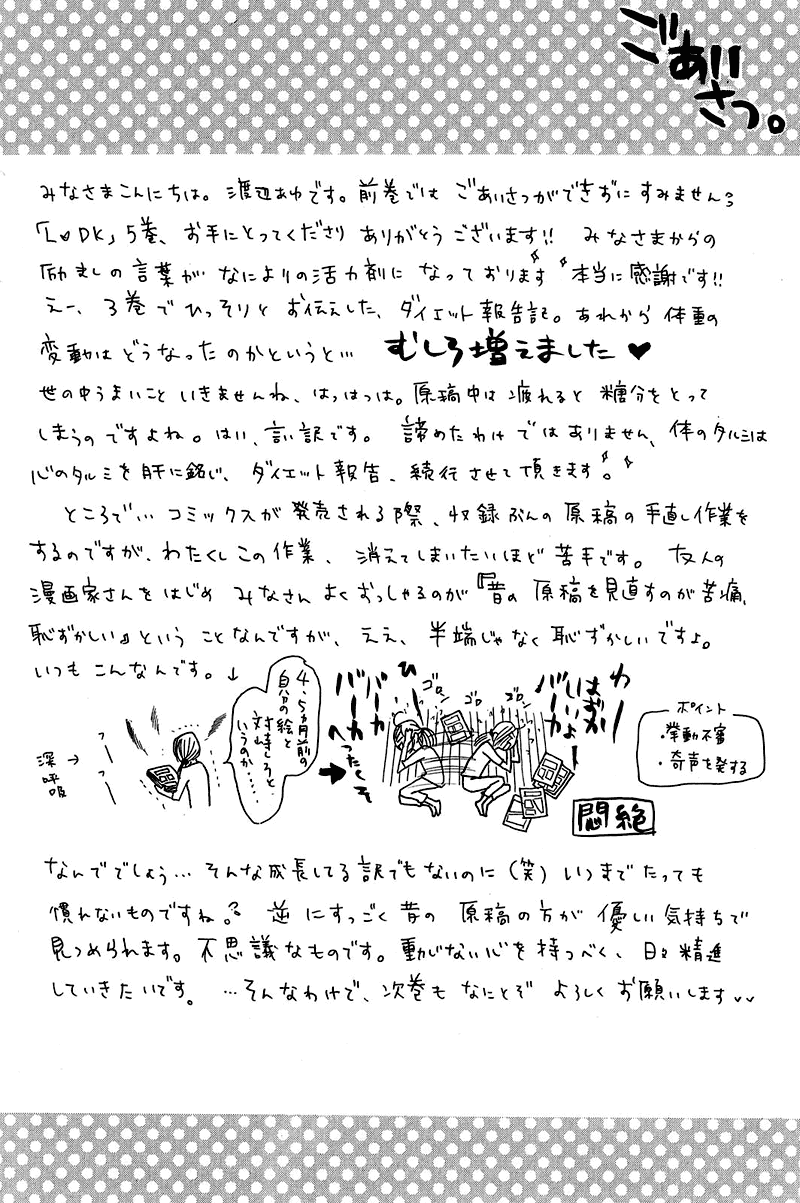 ごあいさつ。
みなさまこんにちは。渡辺あゆです。前巻では ごあいさつができずにすみません
「L♥DK」5巻、お手にとってくださり ありがとうございます!! みなさまからの
励ましの言葉が なによりの活力剤に なっております 本当に感謝です!!
えー、3巻でひっそりと お伝えした、ダイエット報告記。あれから 体重の
変動は どうなったのかというと… むしろ増えました♥
世の中うまいこと いきませんね、はっはっは。原稿中は 疲れると 糖分をとって
しまうのですよね。はい、言い訳です。 諦めたわけではありません、体のタルミは
心のタルミを肝に銘じ、ダイエット報告、続行させて頂きます。
ところで… コミックスが 発売される際、収録ぶんの 原稿の手直し作業を
するのですが、わたくしこの作業、消えてしまいたいほど 苦手です。 友人の
漫画家さんをはじめ みなさん よくおっしゃるのが『昔の 原稿を見直すのが苦痛、
恥ずかしい』という ことなんですが、ええ、半端じゃなく 恥ずかしいですよ。
いつも こんなんです。↓
深呼吸→
4、5ヵ月前の
自分の絵と
対峙しろと
いうのか……
➡
ひー
バーカ
バーカ
へったくそ
ゴロン
ゴロ
ゴロン
わー
はずかしいよー
バーカ
悶絶
ポイント
・挙動不審
・奇声を発する
なんででしょう… そんな成長してる訳でもないのに(笑)いつまでたっても
慣れないものですね。 逆にすっごく昔の 原稿の方が 優しい気持ちで
見つめられます。不思議なものです。動じない心を 持つべく、日々精進
していきたいです。 …そんなわけで、次巻も なにとぞ よろしくお願いします